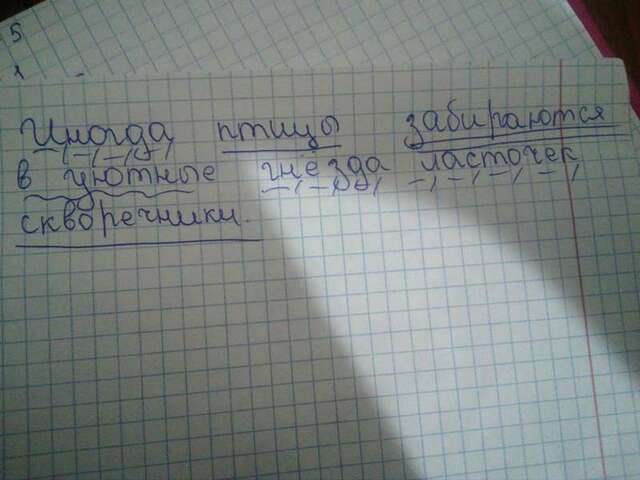 5
Иногда птицы забираются
в уютные гнезда ласточек,
скворечники.